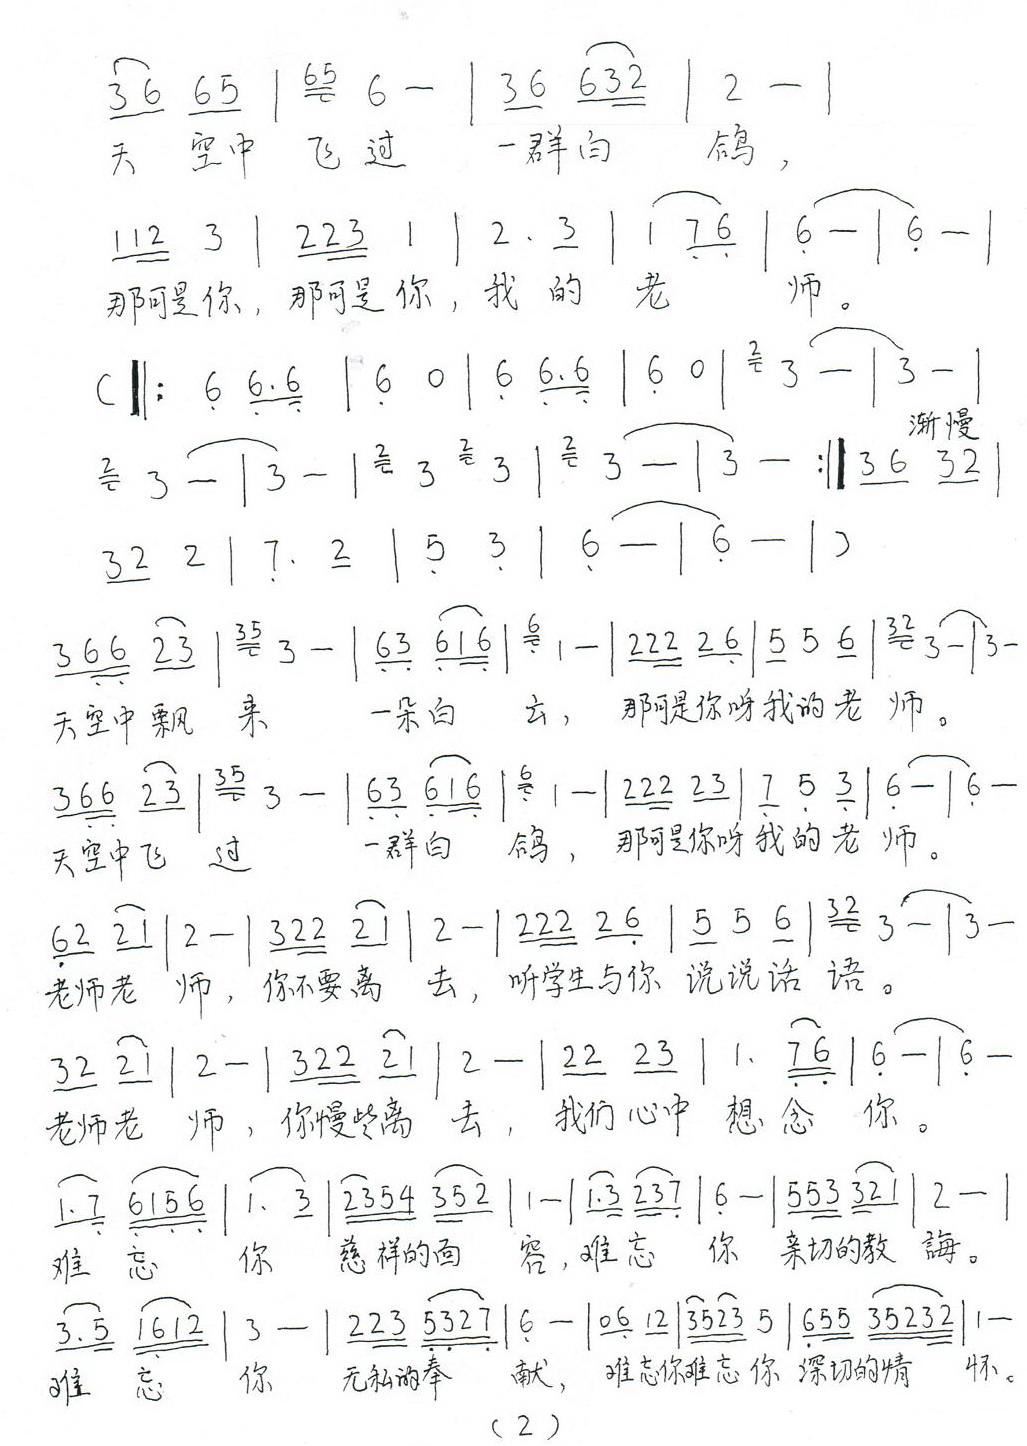 36 65 | 65 6 — | 36 632 | 2 — |
天 空中 飞过 一群白 鸽，
112 3 | 223 1 | 2. 3 | 1 76 | 6 — | 6 — |
那可是你，那可是你，我的 老 师。
( ‖: 6 6.6 | 6 0 | 6 6.6 | 6 0 | 2 3 — | 3 — |
渐慢
2 3 — | 3 — | 2 3 2 3 | 2 3 — | 3 — :‖ 36 32 |
32 2 | 7. 2 | 5 3 | 6 — | 6 — | )
366 23 | 35 3 — | 63 616 | 6 1 — | 222 26 | 5 5 6 | 32 3 — | 3 —
天空中飘 来 一朵白 云，那可是你呀我的老 师。
366 23 | 35 3 — | 63 616 | 6 1 — | 222 23 | 7 5 3 | 6 — | 6 —
天空中飞 过 一群白 鸽，那可是你呀我的老 师。
62 21 | 2 — | 322 21 | 2 — | 222 26 | 5 5 6 | 32 3 — | 3 —
老师老 师，你不要离 去，听学生与你 说说话 语。
32 21 | 2 — | 322 21 | 2 — | 22 23 | 1. 76 | 6 — | 6 —
老师老 师，你慢些离 去，我们心中 想念 你。
1.7 6156 | 1. 3 | 2354 352 | 1 — | 1.3 237 | 6 — | 553 321 | 2 — |
难 忘 你 慈祥的面 容，难忘 你 亲切的教 誨。
3.5 1612 | 3 — | 223 5327 | 6 — | 06 12 | 3523 5 | 655 35232 | 1 —
难 忘 你 无私的奉 献，难忘你难忘你 深切的情 怀。
(2)